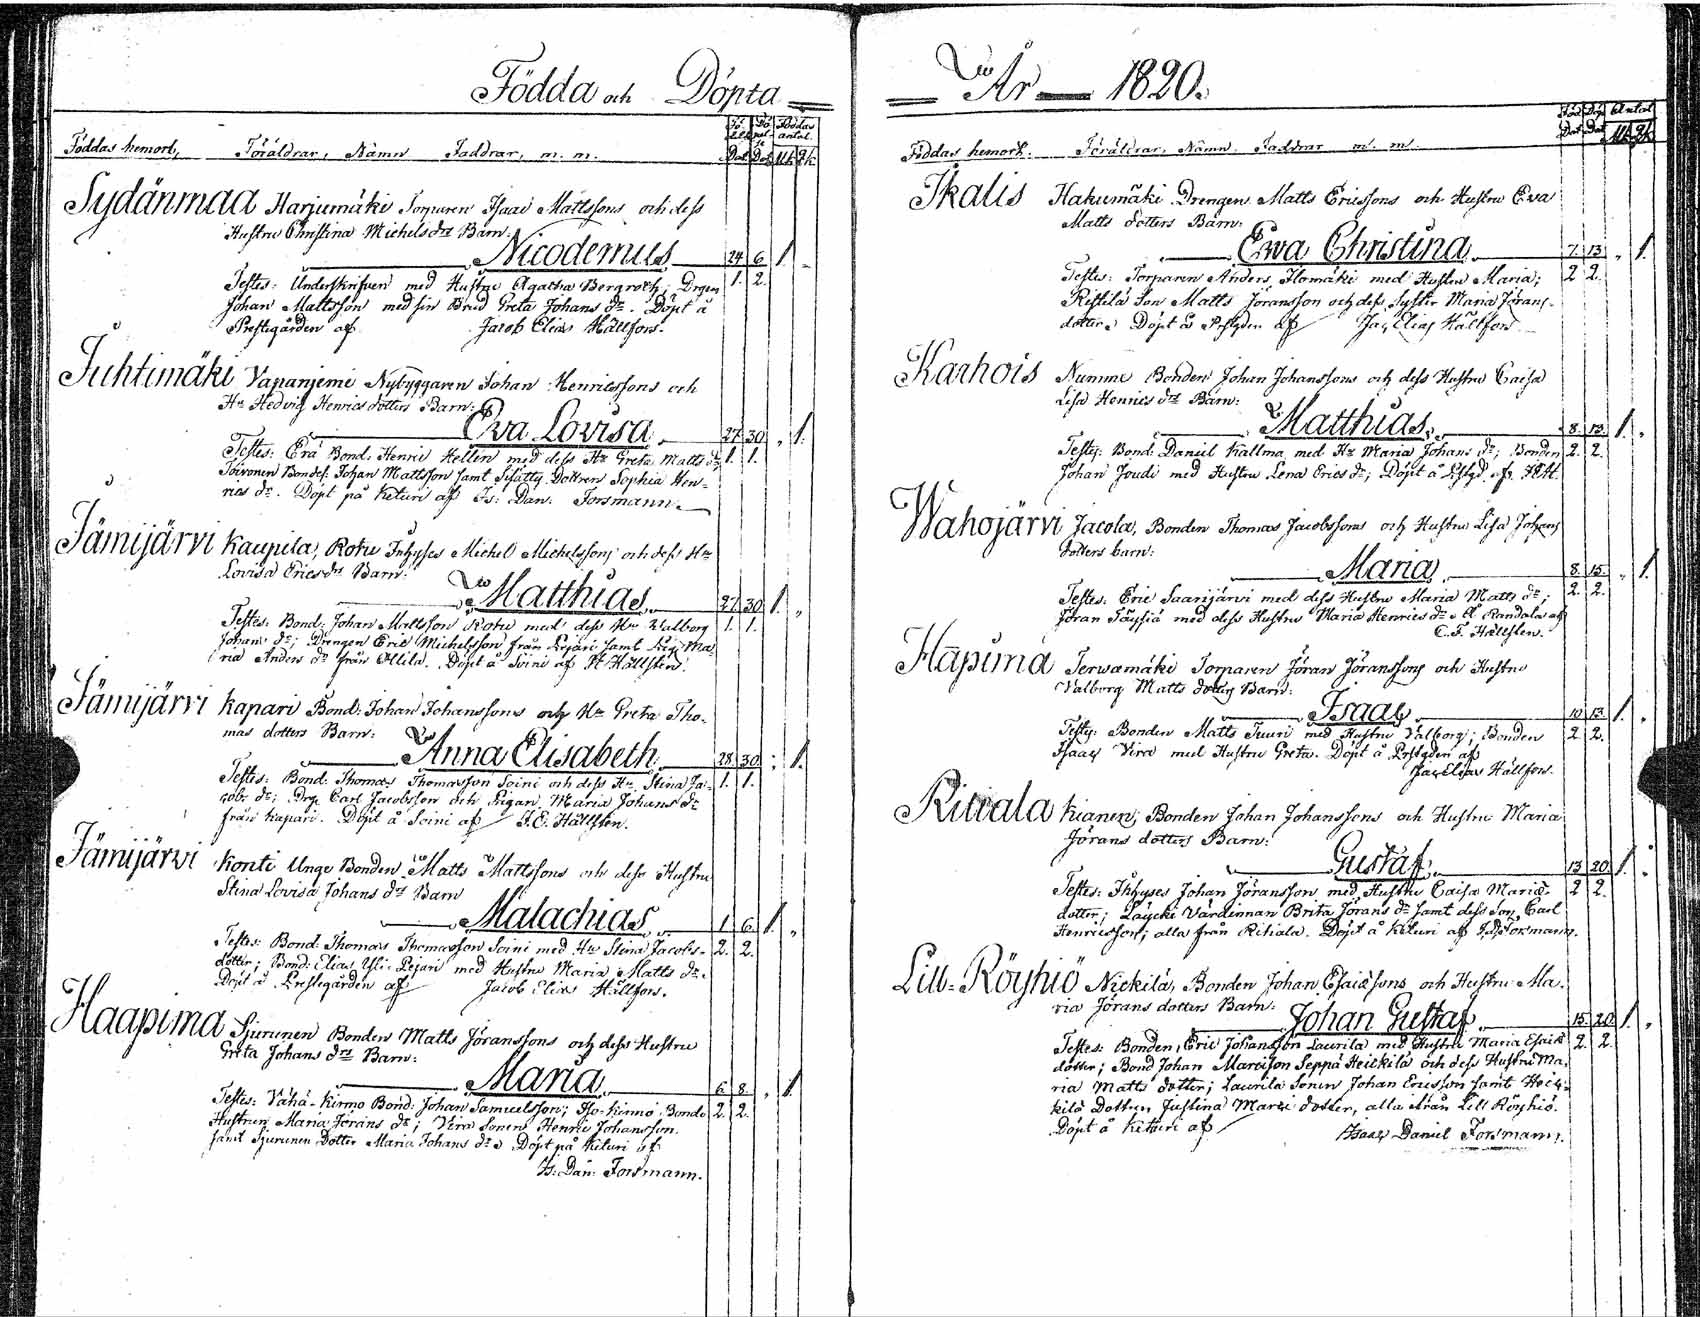 Födda och Döpta
Föddas hemort, Föräldrar, Namn Faddrar, m. m.
Föddas antal.
Dat Dat Mk Qk
Sydänmaa Harjumäki Torparen Isaac Mattssons och dess
Hustru Christina Michelsdrs Barn:
Nicodemus 24 6 1.
Testes: Underskrifven med Hustru Agatha Bergroth; Drgen 1. 2.
Johan Mattsson med sin Brud Greta Johans dr. Döpt å
Prestegården af Jacob Elias Hällfors.
Juhtimäki Vapanjemi Nybyggaren Johan Henricssons och
Hu Hedvig Henrics dotters Barn:
Eva Lovisa 27 30 „ 1.
Testes: Erä Bond. Henric Hellen med dess Hu Greta Matts dr 1. 1.
Toivonen Bondes. Johan Mattsson samt Dottren Sophia Hen-
rics dr. Döpt på Keturi af Is: Dan. Forsmann.
Jämijärvi Kaupila, Rotu Inhyses Michel Michelssons och dess Hu
Lovisa Erics drs Barn:
Matthias 27 30 1. „
Testes: Bond: Johan Mattsson Rotu med dess Hu Valborg 1. 1.
Johans dr; Drengen Eric Michelsson från Lejari samt Pig. Ma-
ria Anders dr från Ollila. Döpt å Soini af Hällsten.
Jämijärvi Kapari Bond: Johan Johanssons och Hu Greta Tho-
mas dotters Barn:
Anna Elisabeth 28. 30. „ 1.
Testes: Bond: Thomas Thomasson Soini och dess Hu Stina Ja- 1. 1.
cobs dr; Drg: Carl Jacobsson och Pigan Maria Johans dr
från Kapari. Döpt å Soini af Hällsten.
Jämijärvi Konti Unge Bonden Matts Mattssons och dess Hustru
Stina Lovisa Johans drs Barn
Malachias 1 6. 1. „
Testes: Bond: Thomas Thomasson Soini med Hu Stina Jacobs- 2. 2.
dotter; Bond: Elias Yli-Lejari med Hustru Maria Matts dr.
Döpt å Prestegården af Jacob Elias Hällfors.
Haapima Sjurunen Bonden Matts Jöranssons och dess Hustru
Greta Johans drs Barn:
Maria 6 8. „ 1.
Testes: Vähä-Kinno Bond: Johan Samuelsson; Iso-Kinno Bonde 2. 2.
Hustrun Maria Jörans dr; Vira Sonen Henric Johansson.
samt Sjurunen Dotter Maria Johans dr. Döpt på Keturi af
Is: Dan: Forsmann.
År 1820.
Antal
Dat Dat Mk Qk
Föddas hemort. Föräldrar, Namn, Faddrar m. m.
Ikalis Hakumäki Drengen Matts Ericssons och Hustru Eva
Matts dotters Barn:
Ewa Christina 7. 13 „ 1.
Testes: Torparen Anders Ilomäki med Hustru Maria; 2 2.
Ristila Son Matts Jöransson och dess Syster Maria Jörans-
dotter. Döpt å Prstgden af Jac, Elias Hällfors
Karhois Numme Bonden Johan Johanssons och dess Hustru Caisa
Lisa Henrics drs Barn:
Matthias 8. 13. 1. „
Testes: Bond: Daniel Kallma med Hu Maria Johans dr; Bonden 2. 2.
Johan Joudi med Hustru Lena Erics dr; Döpt å af
Wahojärvi Jacola, Bonden Thomas Jacobssons och Hustru Lisa Johans
dotters barn:
Maria 8. 15. „ 1.
Testes: Eric Saarijärvi med dess Hustru Maria Matts dr; 2. 2.
Jöran med dess Hustru Maria Henrics dr. Å Randala af
C. F. Hällsten.
Hapima Terwamäki Torparen Jöran Jöranssons och Hustru
Valborg Matts dotters Barn:
Isaac 10 13. 1. „
Testes: Bonden Matts Tuuri med Hustru Valborg; Bonden 2 2.
Isaac Vira med Hustru Greta. Döpt å Prstgden af
Jac Elias Hällfors.
Ritiala Kianen; Bonden Johan Johanssons och Hustru Maria
Jörans dotters Barn:
Gustaf 13 20. 1.
Testes: Inhyses Johan Jöransson med Hustru Caisa Mariæ- 2 2.
dotter; Läycki Värdinnan Brita Jörans dr samt dess Son Carl
Henricsson; alla från Ritiala. Döpt å Keturi af I. D. Forsmann.
Lill-Röyhiö Nickilä, Bonden Johan Esaiæssons och Hustru Ma-
ria Jörans dotters Barn:
Johan Gustaf 15. 20. 1. „
Testes: Bonden, Eric Johansson Laurila med Hustru Maria Esaiæ 2. 2.
dotter; Bond Johan Martisson Seppä Heickilä och dess Hustru Ma-
ria Matts dotter; Laurila Sonen Johan Ericsson samt Heic-
kilä Dottren Justina Marci dotter, alla från Lill Röyhiö.
Döpt å Keturi af Isaac Daniel Forsmann.